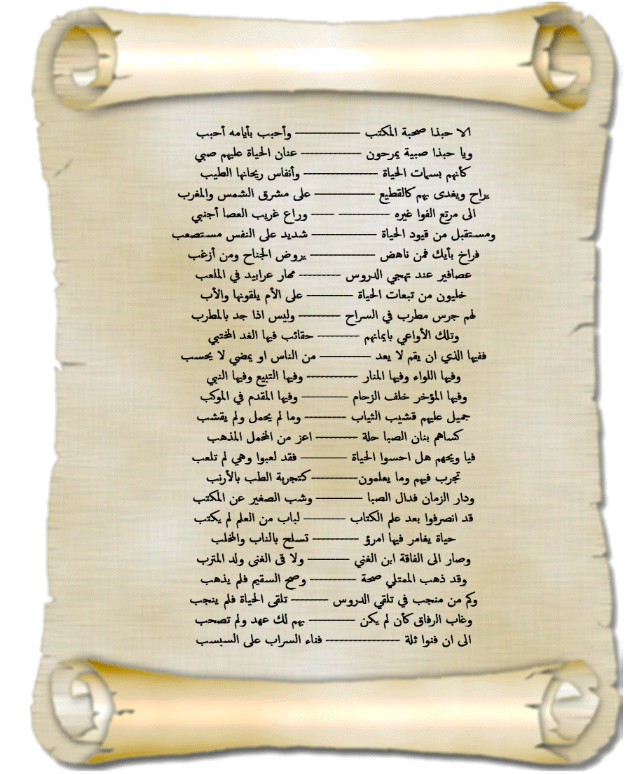 الا حبذا صحبة المكتب ــــــــــــ وأحبب بأيامه أحبب
ويا حبذا صبية يمرحون ــــــــــــ عنان الحياة عليهم صبي
كأنهم بسمات الحياة ــــــــــــ وأنفاس ريحانها الطيب
يراح ويغدى بهم كالقطيع ــــــــــــ على مشرق الشمس والمغرب
الى مرتع الفوا غيره ــــــــــــ ــــــ وراع غريب العصا أجنبي
ومستقبل من قيود الحياة ــــــــــــ شديد على النفس مستصعب
فراخ بأيك فمن ناهض ــــــــــــ يروض الجناح ومن أزغب
عصافير عند تهجي الدروس ــــــــــــ مهار عرابيد في الملعب
خليون من تبعات الحياة ــــــــــــ على الأم يلقونها والأب
لهم جرس مطرب في السراح ــــــــــــ وليس اذا جد بالمطرب
وتلك الأواعي بايمانهم ــــــــــــ حقائب فيها الغد المختبي
ففيها الذي ان يقم لا يعد ــــــــــــ من الناس او يمضي لا يحسب
وفيها اللواء وفيها المنار ــــــــــــ وفيها التبيع وفيها النبي
وفيها المؤخر خلف الزحام ــــــــــــ وفيها المقدم في الموكب
جميل عليهم قشيب الثياب ــــــــــــ وما لم يجمل ولم يقشب
كساهم بنان الصبا حلة ــــــــــــ اعز من المخمل المذهب
فيا ويحهم هل احسوا الحياة ــــــــــــ فقد لعبوا وهي لم تلعب
تجرب فيهم وما يعلمون ــــــــــــ كتجربة الطب بالأرنب
ودار الزمان فدال الصبا ــــــــــــ وشب الصغير عن المكتب
قد انصرفوا بعد علم الكتاب ــــــــــــ لباب من العلم لم يكتب
حياة يغامر فيها امرؤ ــــــــــــ تسلح بالناب والمخلب
وصار الى الفاقة ابن الغني ــــــــــــ ولا قى الغنى ولد المترب
وقد ذهب الممتلي صحة ــــــــــــ وصح السقيم فلم يذهب
وكم من منجب في تلقي الدروس ــــــــــــ تلقى الحياة فلم ينجب
وغاب الرفاق كأن لم يكن ــــــــــــ بهم لك عهد ولم تصحب
الى ان فنوا ثلة ــــــــــــ فناء السراب على السبسب